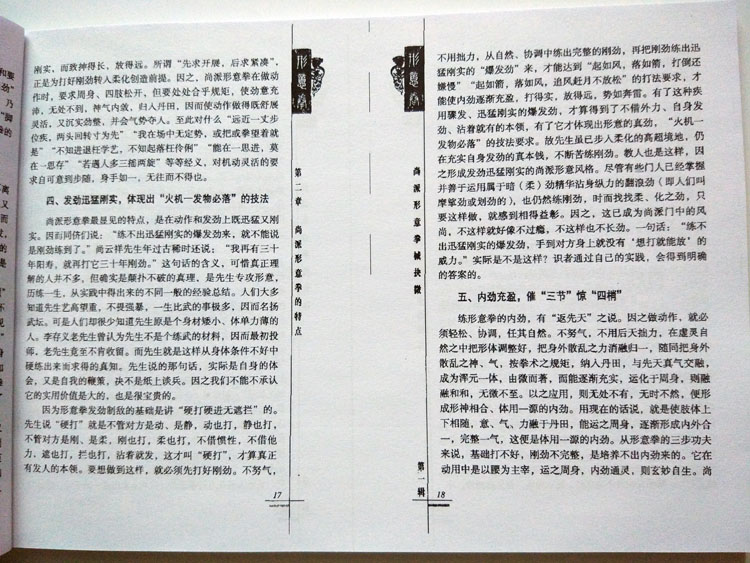 刚实，而致抻得长，放得远。所谓“先求开展，后求紧凑”，
正是为打好刚劲转入柔化创造前提。因之，尚派形意拳在做动
作时，要求周身、四肢松开，但要处处合乎规矩，使劲意充
沛，无处不到，神气内敛，归入丹田，因而使动作做得既舒展
灵活，又沉实劲整、并会气势夺人。至此对什么“远近一丈步
位疾，两头回转寸为先”“我在场中无定势，或把或拳望着就
是”“不知进退枉学艺，不知起落枉伶俐”“能在一思进，莫
在一思存”“若遇人多三摇两旋”等等经义，对机动灵活的要
求自可意到步随，身手如一，无往而不得也。
四、发劲迅猛刚实，体现出“火机一发物必落”的技法
尚派形意拳最显见的特点，是在动作和发劲上既迅猛又刚
实。因而同侪们说：“练不出迅猛刚实的爆发劲来，就不能说
是刚劲练到了。”尚云祥先生年过古稀时还说：“我再有三十
年阳寿，就再打它三十年刚劲。”这句话的含义，可惜真正理
解的人并不多，但确实是颠扑不破的真理，是先生专攻形意，
历练一生，从实践中得出来的不同一般的经验总结。人们大多
知道先生学艺高望重，不畏强暴，一生比武的事极多，因而名扬
武坛。可是人们却很少知道先生原是个身材矮小、体单力薄的
人。李存义老先生曾认为先生不是个练武的材料，因而最初投
师，老先生竟至不肯收留。而先生就是这样从身体条件不好中
硬练出来而求得的真知。先生说的那句话，实际是自身的体
会，又是自我的鞭策，决不是纸上谈兵。因之我们不能不承认
它的实用价值是大的，也是很宝贵的。
因为形意拳发劲制敌的基础是讲“硬打硬进无遮拦”的。
先生说“硬打”就是不管对方是动、是静，动也打，静也打，
不管对方是刚、是柔，刚也打，柔也打，不借惯性，不借他
力、遮也打，拦也打，沾着就发，这才叫“硬打”，才算真正
有发人的本领。要想做到这样，就必须先打好刚劲。不努气，
形意拳
第二章 尚派形意拳的特点
17
形意拳
尚派形意拳械抉微
第一辑
不用拙力，从自然、协调中练出完整的刚劲，再把刚劲练出迅
猛刚实的“爆发劲”来，才能达到“起如风，落如箭，打倒还
嫌慢”“起如箭，落如风，追风赶月不放松”的打法要求，才
能使内劲逐渐充盈，打得实，放得远，势如奔雷。有了这种疾
用骤发、迅猛刚实的爆发劲，才算得到了不借外力、自身发
劲、沾着就有的本领，有了它才体现出形意的真劲，“火机一
发物必落”的技法要求。故先生虽已步入柔化的高超境地，仍
在充实自身发劲的真本钱，不断苦练刚劲。教人也是这样，因
之形成发劲迅猛刚实的尚派形意风格。尽管有些门人已经掌握
并善于运用属于暗（柔）劲精华沾身纵力的翻浪劲（即人们叫
摩挲劲或划劲的），也仍然练刚劲，时而找找柔、化之劲，只
要这样做，就感到相得益彰。因之，这已成为尚派门中的风
尚，不这样就好像不过瘾，不这样也不长劲。一句话：“练不
出迅猛刚实的爆发劲，手到对方身上就没有‘想打就能放’的
威力。”实际是不是这样？识者通过自己的实践，会得到明确
的答案的。
五、内劲充盈，催“三节”惊“四梢”
练形意拳的内劲，有“返先天”之说。因之做动作，就必
须轻松、协调，任其自然。不努气，不用后天拙力，在虚灵自
然之中把形体调整好，把身外散乱之力消融归一，随同把身外
散乱之神、气，按拳术之规矩，纳入丹田，与先天真气交融，
成为浑元一体，由微而著，而能逐渐充实，远化于周身，则融
融和和，无微不至。以之应用，则无处不有，无时不然，便形
成形神相合、体用一源的内劲。用现在的话说，就是使肢体上
下相随，意、气、力融于丹田，能运之周身，逐渐形成内外合
一，完整一气，这便是体用一源的内劲。从形意拳的三步功夫
来说，基础打不好，刚劲不完整，是培养不出内劲来的。它在
动用中是以腰为主宰，运之周身，内劲通灵，则玄妙自生。尚
18